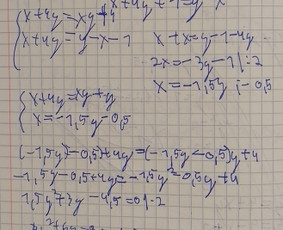 x+4y=xy+4
x+4y=y-x-1
x+x=y-1-4y
2x=-3y-1 |:2
x=-1,5y-0,5
x+4y=xy+y
x=-1,5y-0,5
(-1,5y-0,5)+4y=(-1,5y-0,5)y+4
-1,5y-0,5+4y=-1,5y²-0,5y+4
1,5y²+3y-4,5=0|·2